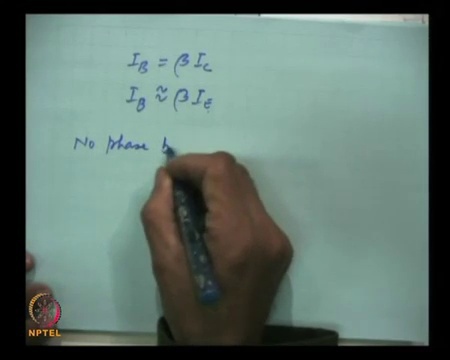 I_B = β I_C
I_B ≈ β I_E
No phase b
NPTEL